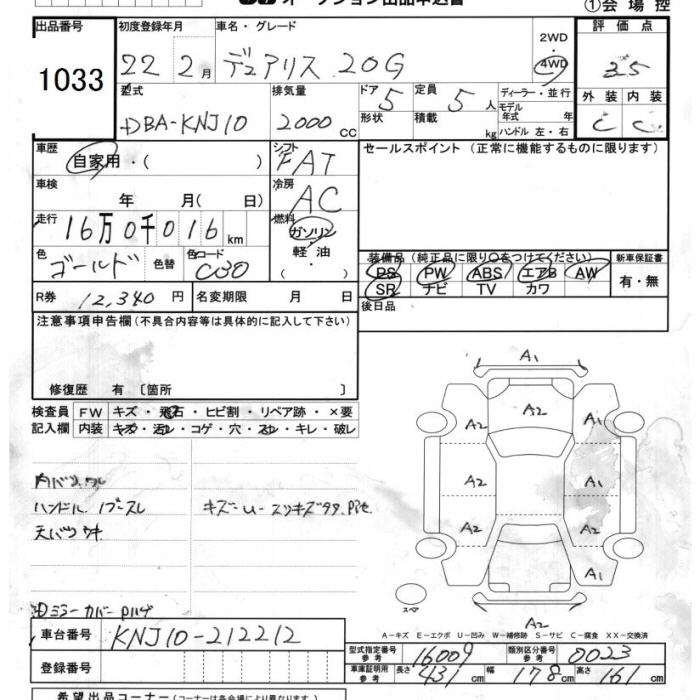 オークション出品申込書
①会場控
出品番号 初度登録年月 車名・グレード 2WD・4WD 評価点
1033 22 2月 デュアリス 20G 3.5
型式 排気量 ドア 5 定員 5人 ディーラー・並行 外装 内装
DBA-KNJ10 2000cc 形状 積載 kg モデル年式 年 C C
ハンドル 左・右
車歴 シフト セールスポイント(正常に機能するものに限ります)
自家用・( ) FAT
車検 冷房
年 月( 日) AC
走行 16万0千016km 燃料
ガソリン・軽油・( )
色 ゴールド 色替 色コード C30
装備品(純正品に限り○をつけてください) 新車保証書
PS PW ABS エアB AW 有・無
SR ナビ TV カワ
R券 12,340円 名変期限 月 日
後日品
注意事項申告欄(不具合内容等は具体的に記入して下さい)
修復歴 有〔箇所 〕
検査員記入欄 FW キズ・飛石・ヒビ割・リペア跡・×要
内装 キズ・汚レ・コゲ・穴・スレ・キレ・破レ
A1
A2 A2 A2 A1
A2 A2
A2 A2
A1
A2
内バリワレ
ハンドル
スペア
A-キズ E-エクボ U-凹み W-補修跡 S-サビ C-腐食 XX-交換済
車台番号 KNJ10-212212
型式指定番号 参考 16009 類別区分番号 参考 0023
登録番号
車庫証明用 参考 長さ 431cm 幅 178cm 高さ 161cm
希望出品コーナー(コーナーは各会場により異なります)